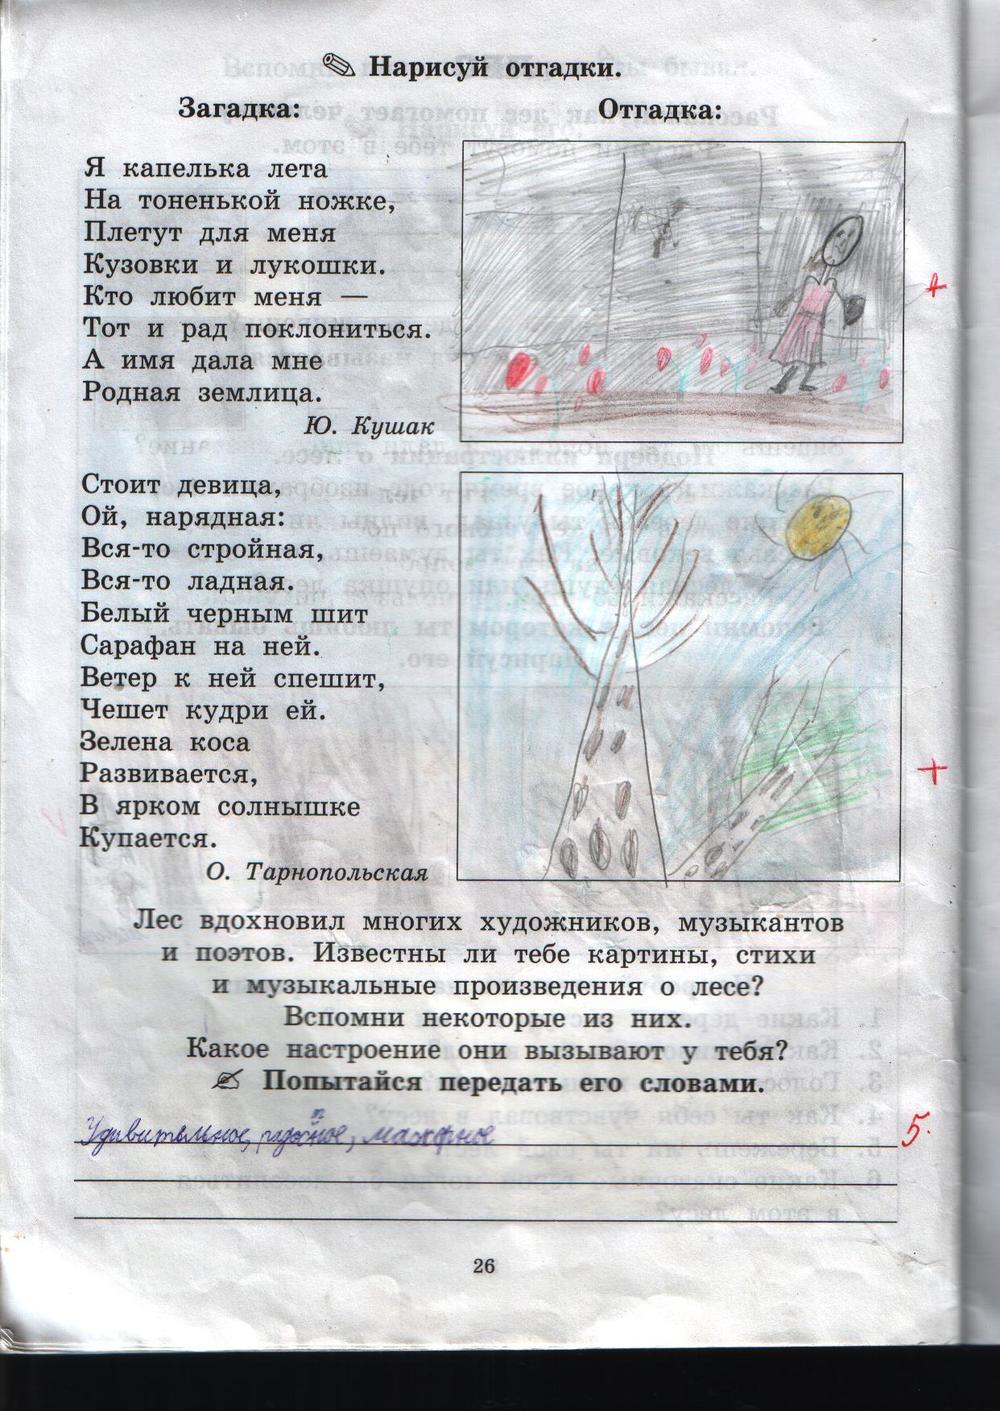 Нарисуй отгадки.
Загадка:
Отгадка:
Я капелька лета
На тоненькой ножке,
Плетут для меня
Кузовки и лукошки.
Кто любит меня —
Тот и рад поклониться.
А имя дала мне
Родная землица.
Ю. Кушак
+
Стоит девица,
Ой, нарядная:
Вся-то стройная,
Вся-то ладная.
Белый черным шит
Сарафан на ней.
Ветер к ней спешит,
Чешет кудри ей.
Зелена коса
Развивается,
В ярком солнышке
Купается.
О. Тарнопольская
+
Лес вдохновил многих художников, музыкантов
и поэтов. Известны ли тебе картины, стихи
и музыкальные произведения о лесе?
Вспомни некоторые из них.
Какое настроение они вызывают у тебя?
Попытайся передать его словами.
Удивительное, 5.
26